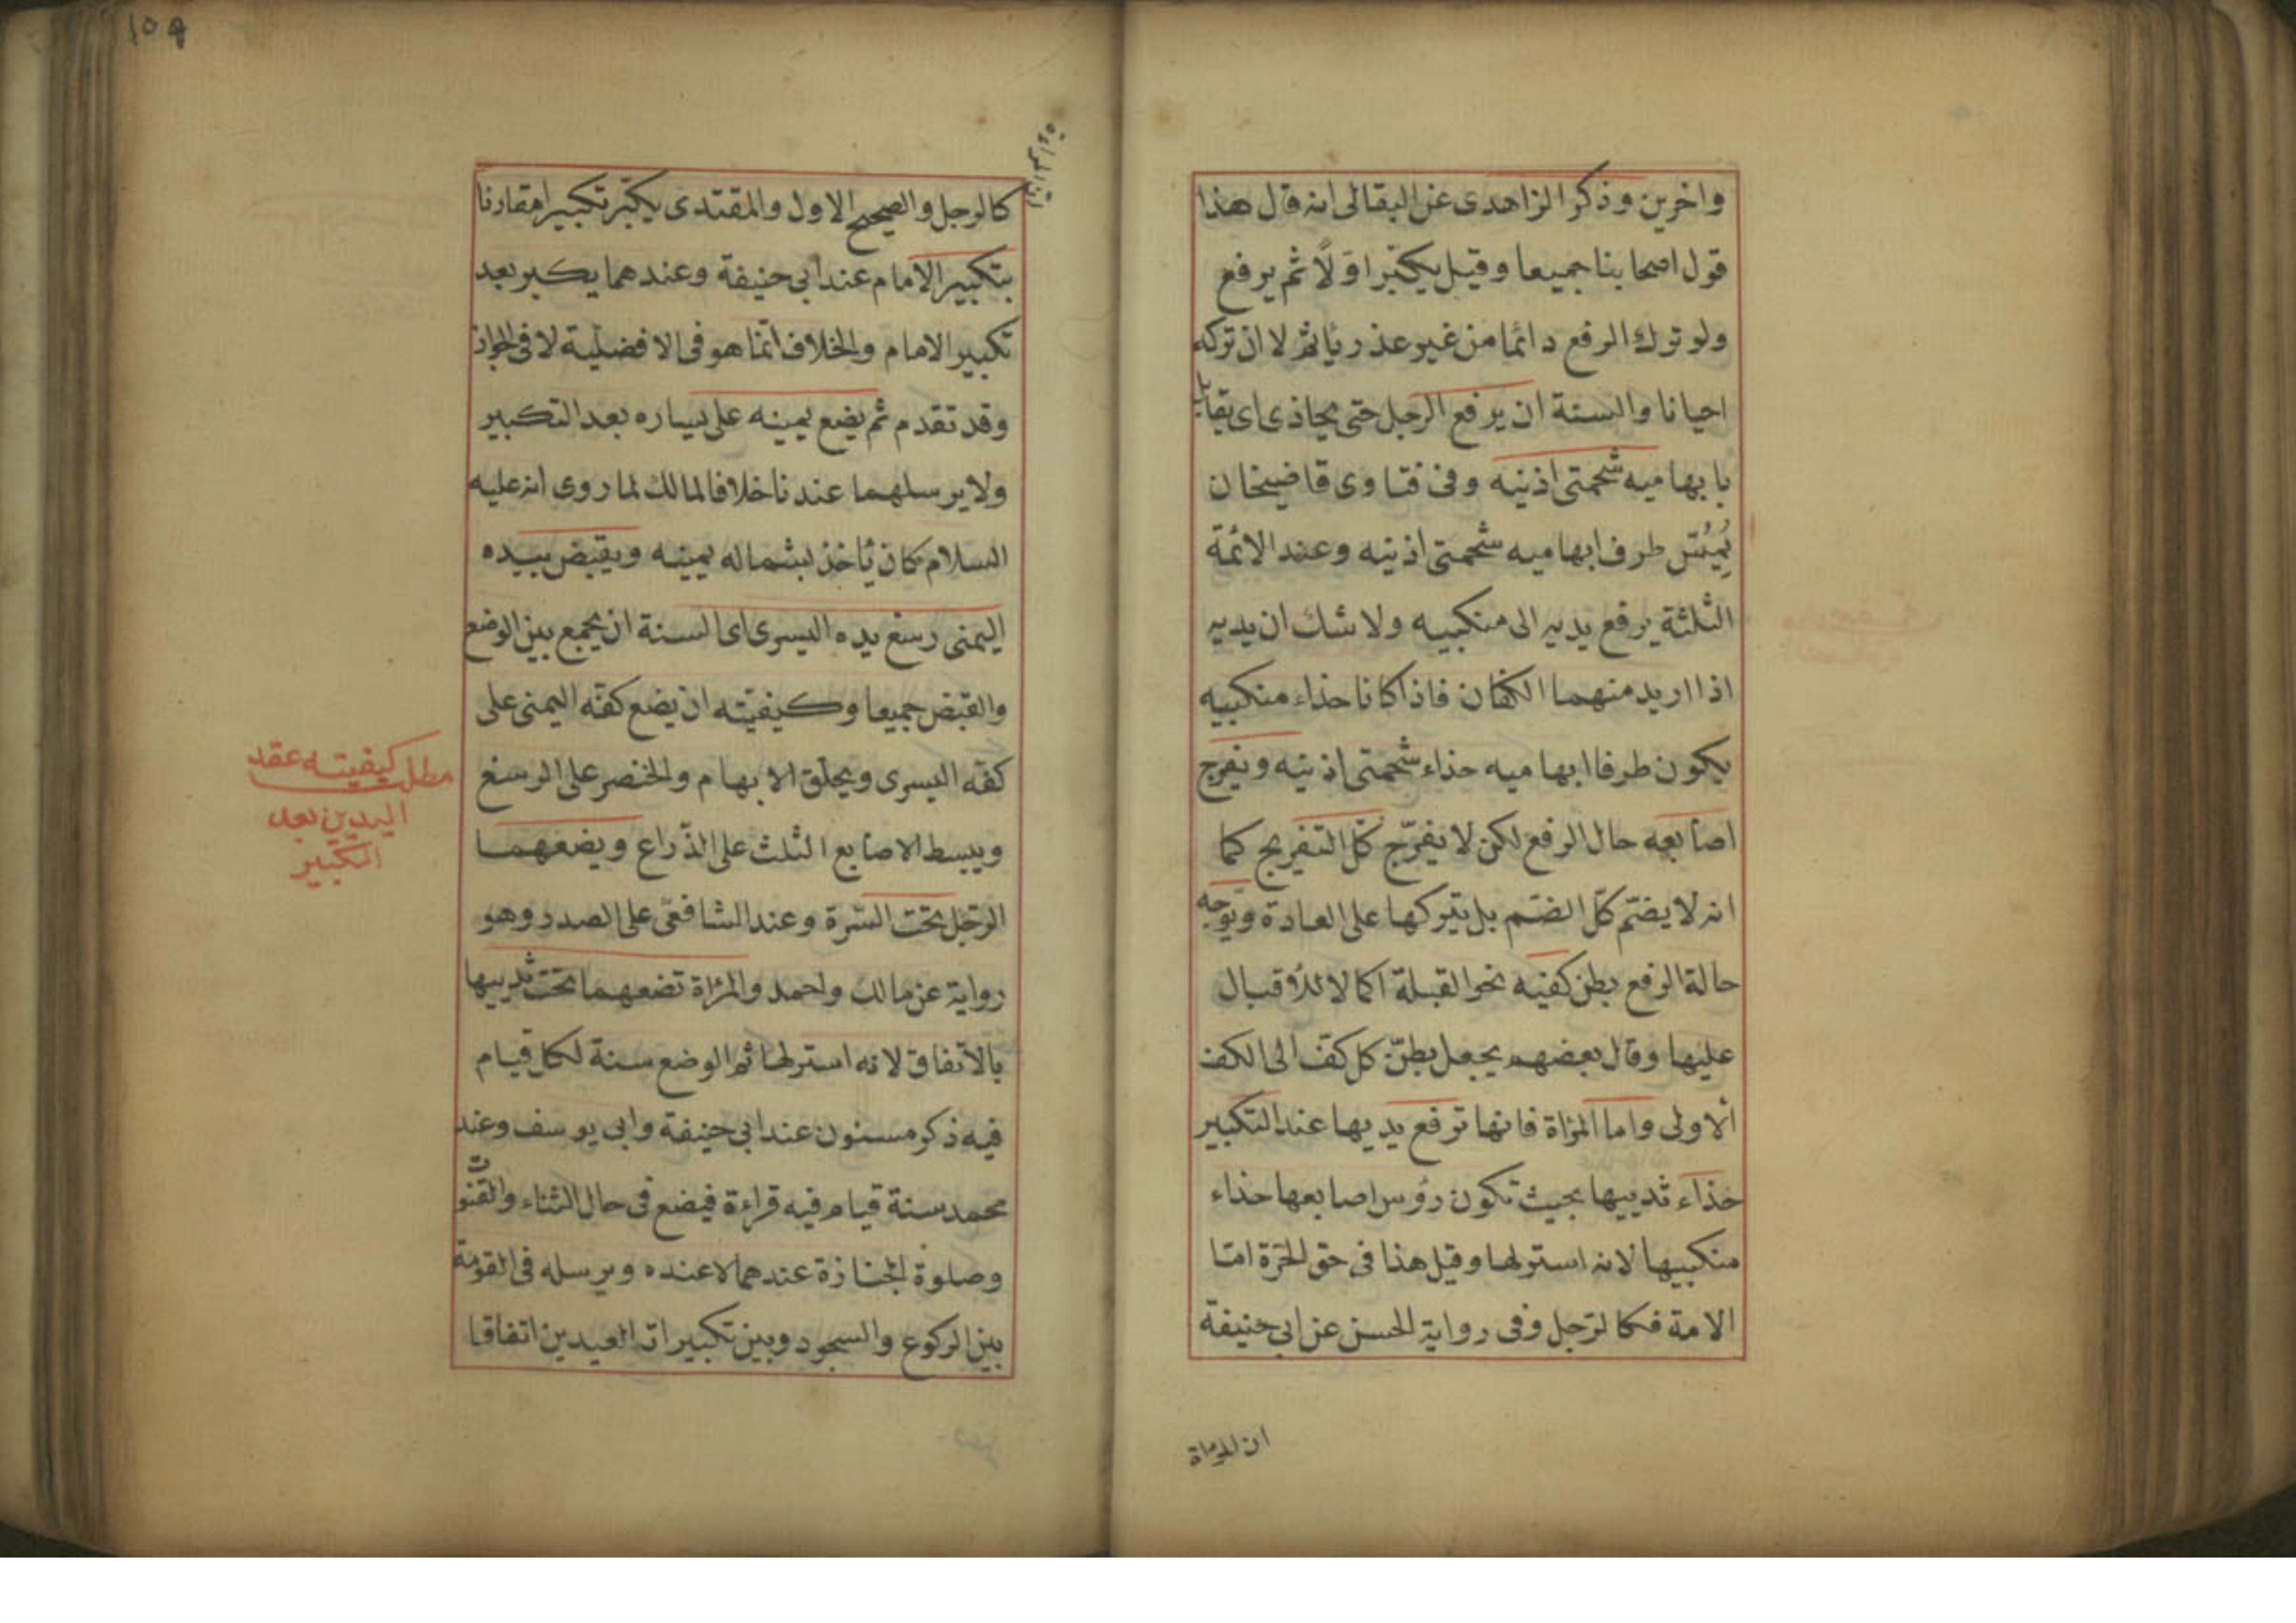 واخرين وذكر الزاهدى عن البقالى انه قال هذا
قول اصحابنا جميعا وقيل يكبّر اوّلاً ثم يرفع
ولو ترك الرفع دائما من غير عذر يأثم لا ان تركه
احيانا والسنة ان يرفع الرجل حتى يحاذى اى يقابل
بابهاميه شحمتى اذنيه وفى فتاوى قاضيخان
يُمِسُّ طرف ابهاميه شحمتى اذنيه وعند الائمة
الثلثة يرفع يديه الى منكبيه ولا شك ان يديه
اذا اريد منهما الكفان فاذا كانا حذاء منكبيه
يكون طرفا ابهاميه حذاء شحمتى اذنيه ويفرج
اصابعه حال الرفع لكن لا يفرّج كلّ التفريج كما
انه لا يضمّ كلّ الضم بل يتركها على العادة ويوجه
حالة الرفع بطن كفيه نحو القبلة اكمالا للأقبال
عليها وقال بعضهم يجعل بطن كل كف الى الكف
الاولى واما المرأة فانها ترفع يديها عند التكبير
حذاء ثدييها بحيث تكون رؤس اصابعها حذاء
منكبيها لانه استر لها وقيل هذا فى حق الحرة امّا
الامة فكالرّجل وفى رواية الحسن عن ابى حنيفة
ان المرأة
١٥٩
كالرجل والصحيح الاول والمقتدى يكبّر تكبيرا مقارنا
بتكبير الامام عند ابى حنيفة وعندهما يكبر بعد
تكبير الامام والخلاف انّما هو فى الافضلية لا فى الجواز
وقد تقدم ثم يضع يمينه على يساره بعد التكبير
ولا يرسلهما عندنا خلافا لمالك لما روى انه عليه
السلام كان يأخذ بشماله يمينه ويقبض بيده
اليمنى رسغ يده اليسرى اى السنة ان يجمع بين الوضع
والقبض جميعا وكيفيته ان يضع كفّه اليمنى على
كفّه اليسرى ويحلّق الابهام والخنصر على الرسغ
ويبسط الاصابع الثلث على الذّراع ويضعهما
الرّجل تحت السّرة وعند الشافعىّ على الصدر وهو
رواية عن مالك واحمد والمرأة تضعهما تحت ثدييها
بالاتفاق لانه استر لها ثم الوضع سنة لكل قيام
فيه ذكر مسنون عند ابى حنيفة وابى يوسف وعند
محمد سنة قيام فيه قراءة فيضع فى حال الثناء والقنوت
وصلوة الجنازة عندهما لا عنده ويرسله فى القومة
بين الركوع والسجود وبين تكبيرات العيدين اتفاقا
مطلب كيفيته عقد
اليدين بعد
التكبير